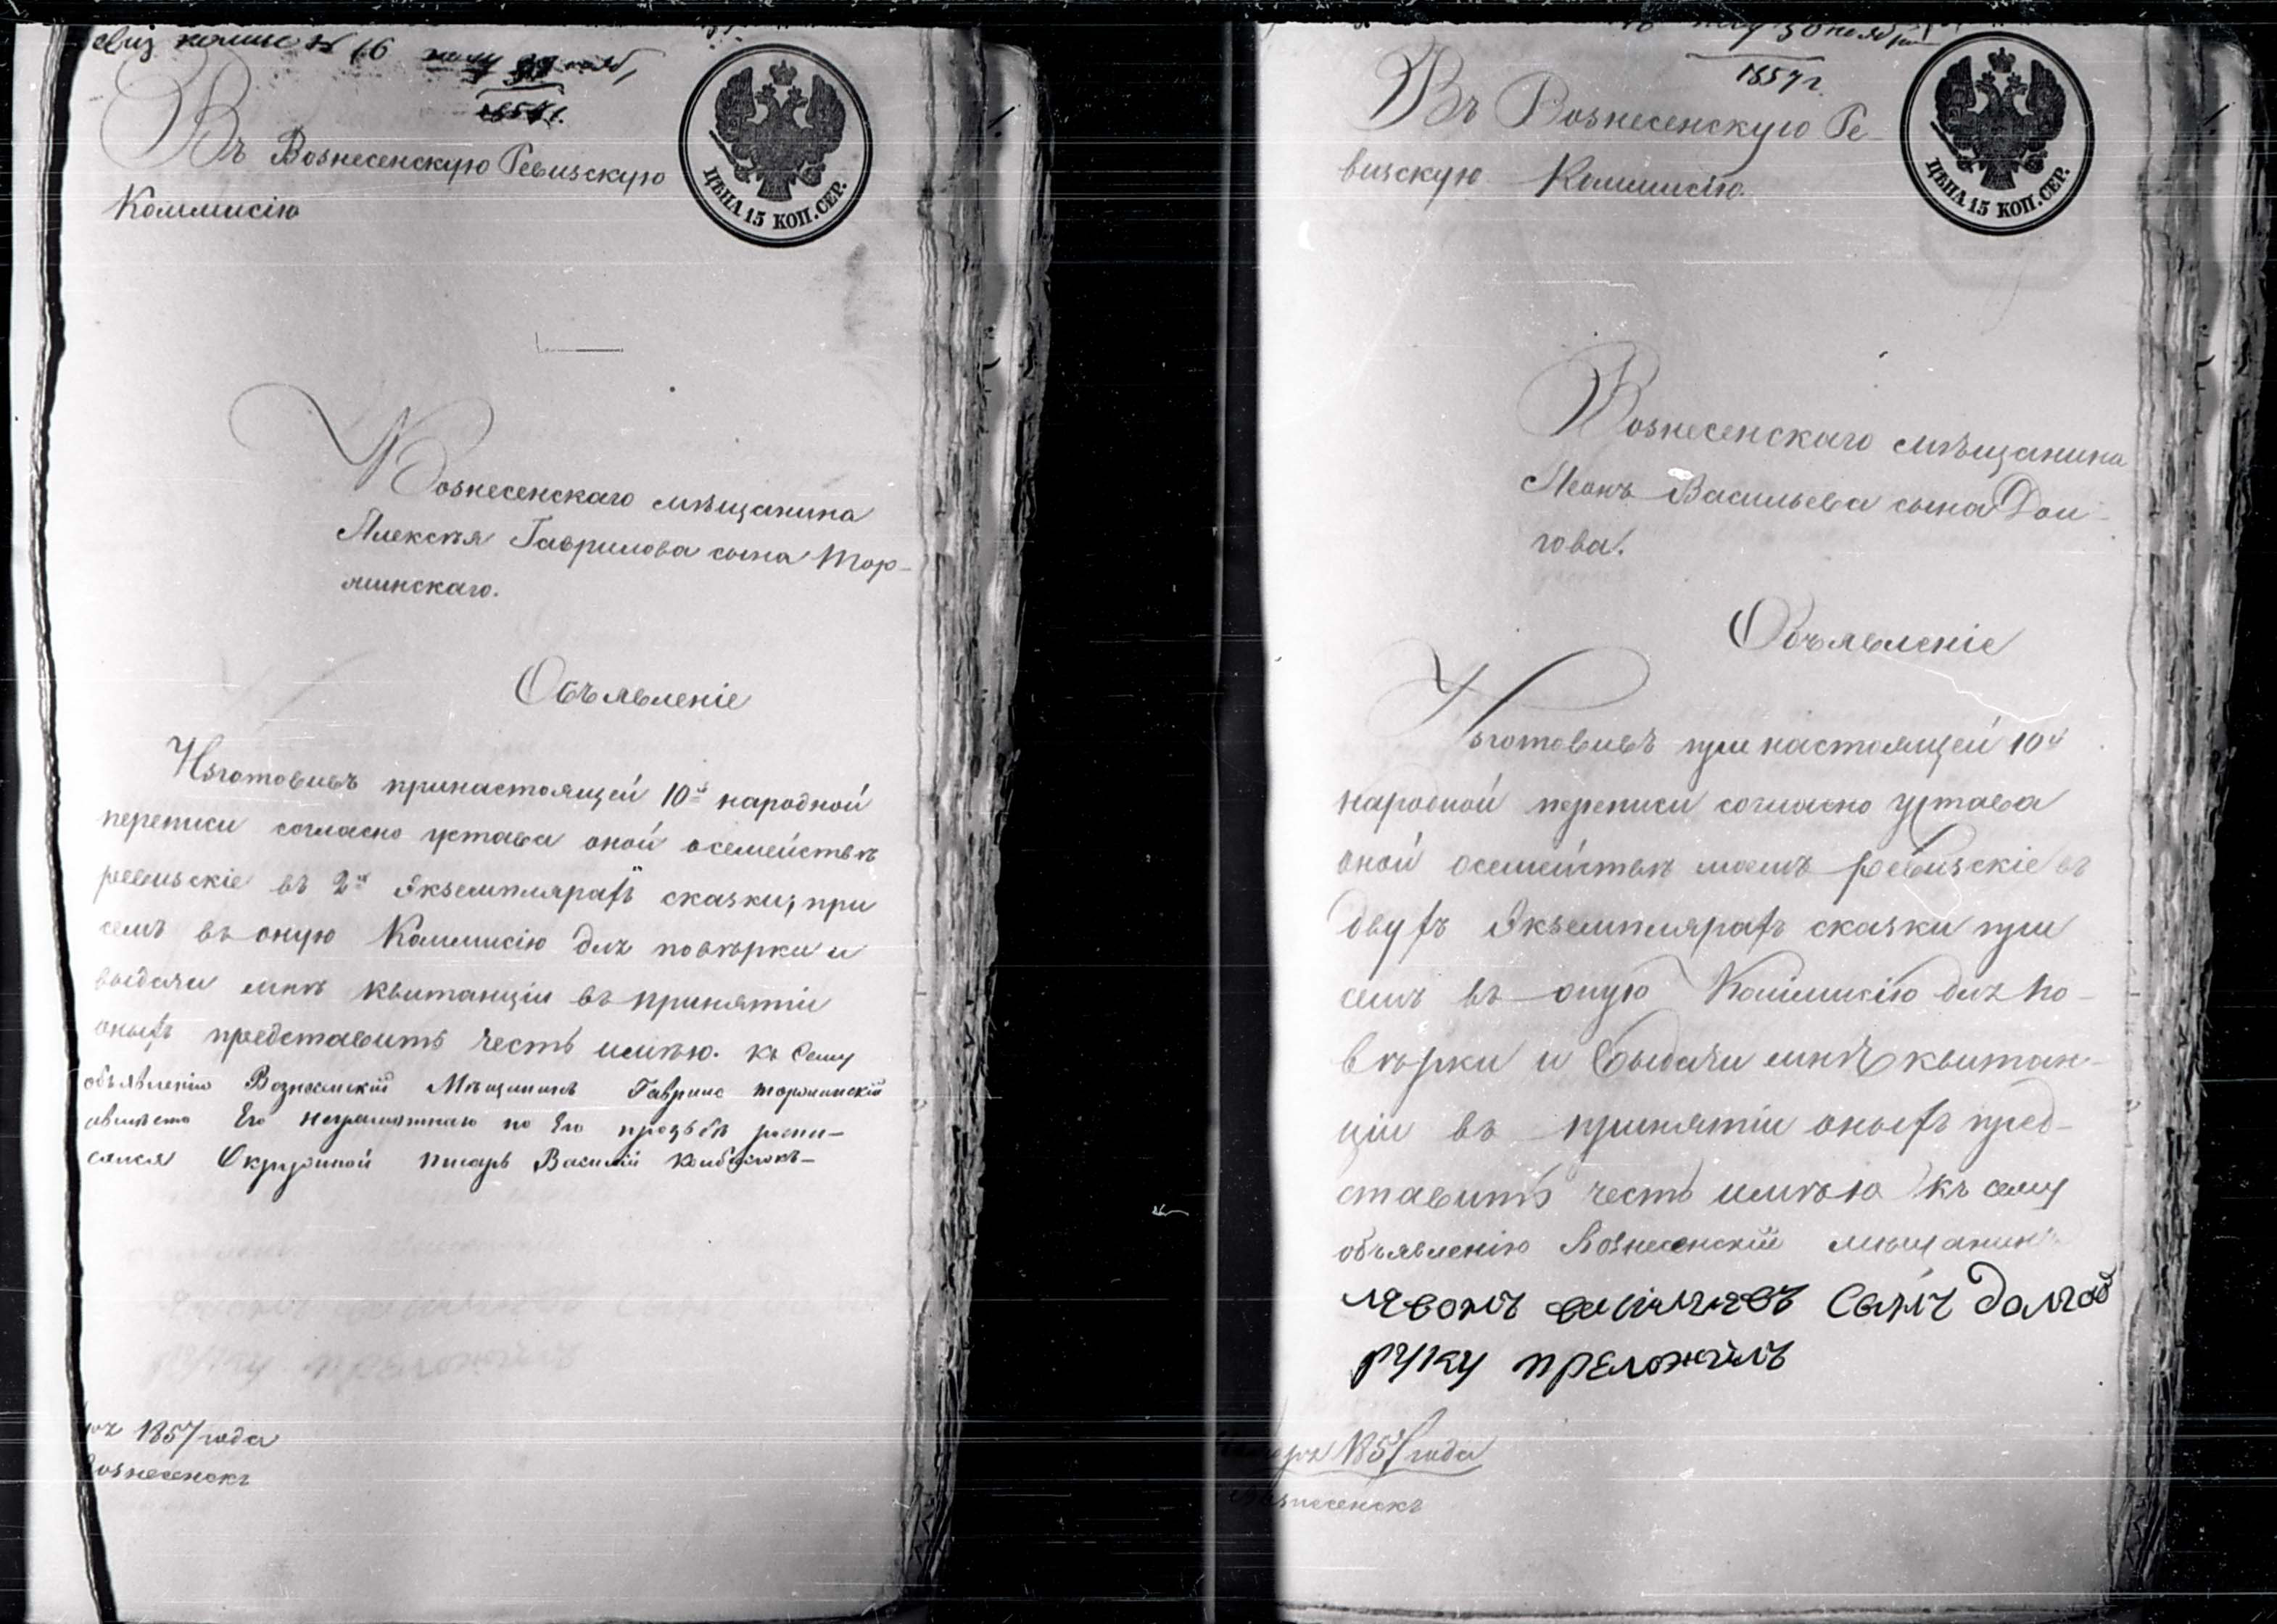 № 16
Въ Вознесенскую Ревизскую
Коммисію
ЦѢНА 15 КОП. СЕР.
Вознесенскаго мѣщанина
Алексѣя Гаврилова сына Тор-
Объявленіе
Изготовивъ принастоящей 10й народной
переписи согласно устава оной осемействѣ
ревизскіе въ 2хъ Экземплярахъ сказки, при
семъ въ оную Коммисію для повѣрки и
выдачи мнѣ квитанціи въ принятіи
оныхъ представить честь имѣю. Къ Сему
объявленію Вознесенскій Мѣщанинъ Гаврило
Его неграмотнаго по Его прозьбѣ роспи-
сался Окружной писарь Василій
1857 года
Вознесенскъ
30 ноября
1857 г.
Въ Вознесенскую Ре-
визскую Коммисію.
ЦѢНА 15 КОП. СЕР.
1.
Вознесенскаго мѣщанина
Леонъ Васильева сына Дол-
гова.
Объявленіе
Изготовивъ при настоящей 10й
народной переписи согласно устава
оной осемействѣ моемъ ревизскіе въ
двухъ Экземплярахъ сказки при
семъ въ оную Коммисію для по-
вѣрки и выдачи мнѣ квитан-
ціи въ принятіи оныхъ пред-
ставить честь имѣю къ сему
объявленію Вознесенскій мѣщанинъ
Сынъ
руку преложилъ
1857 года
Вознесенскъ